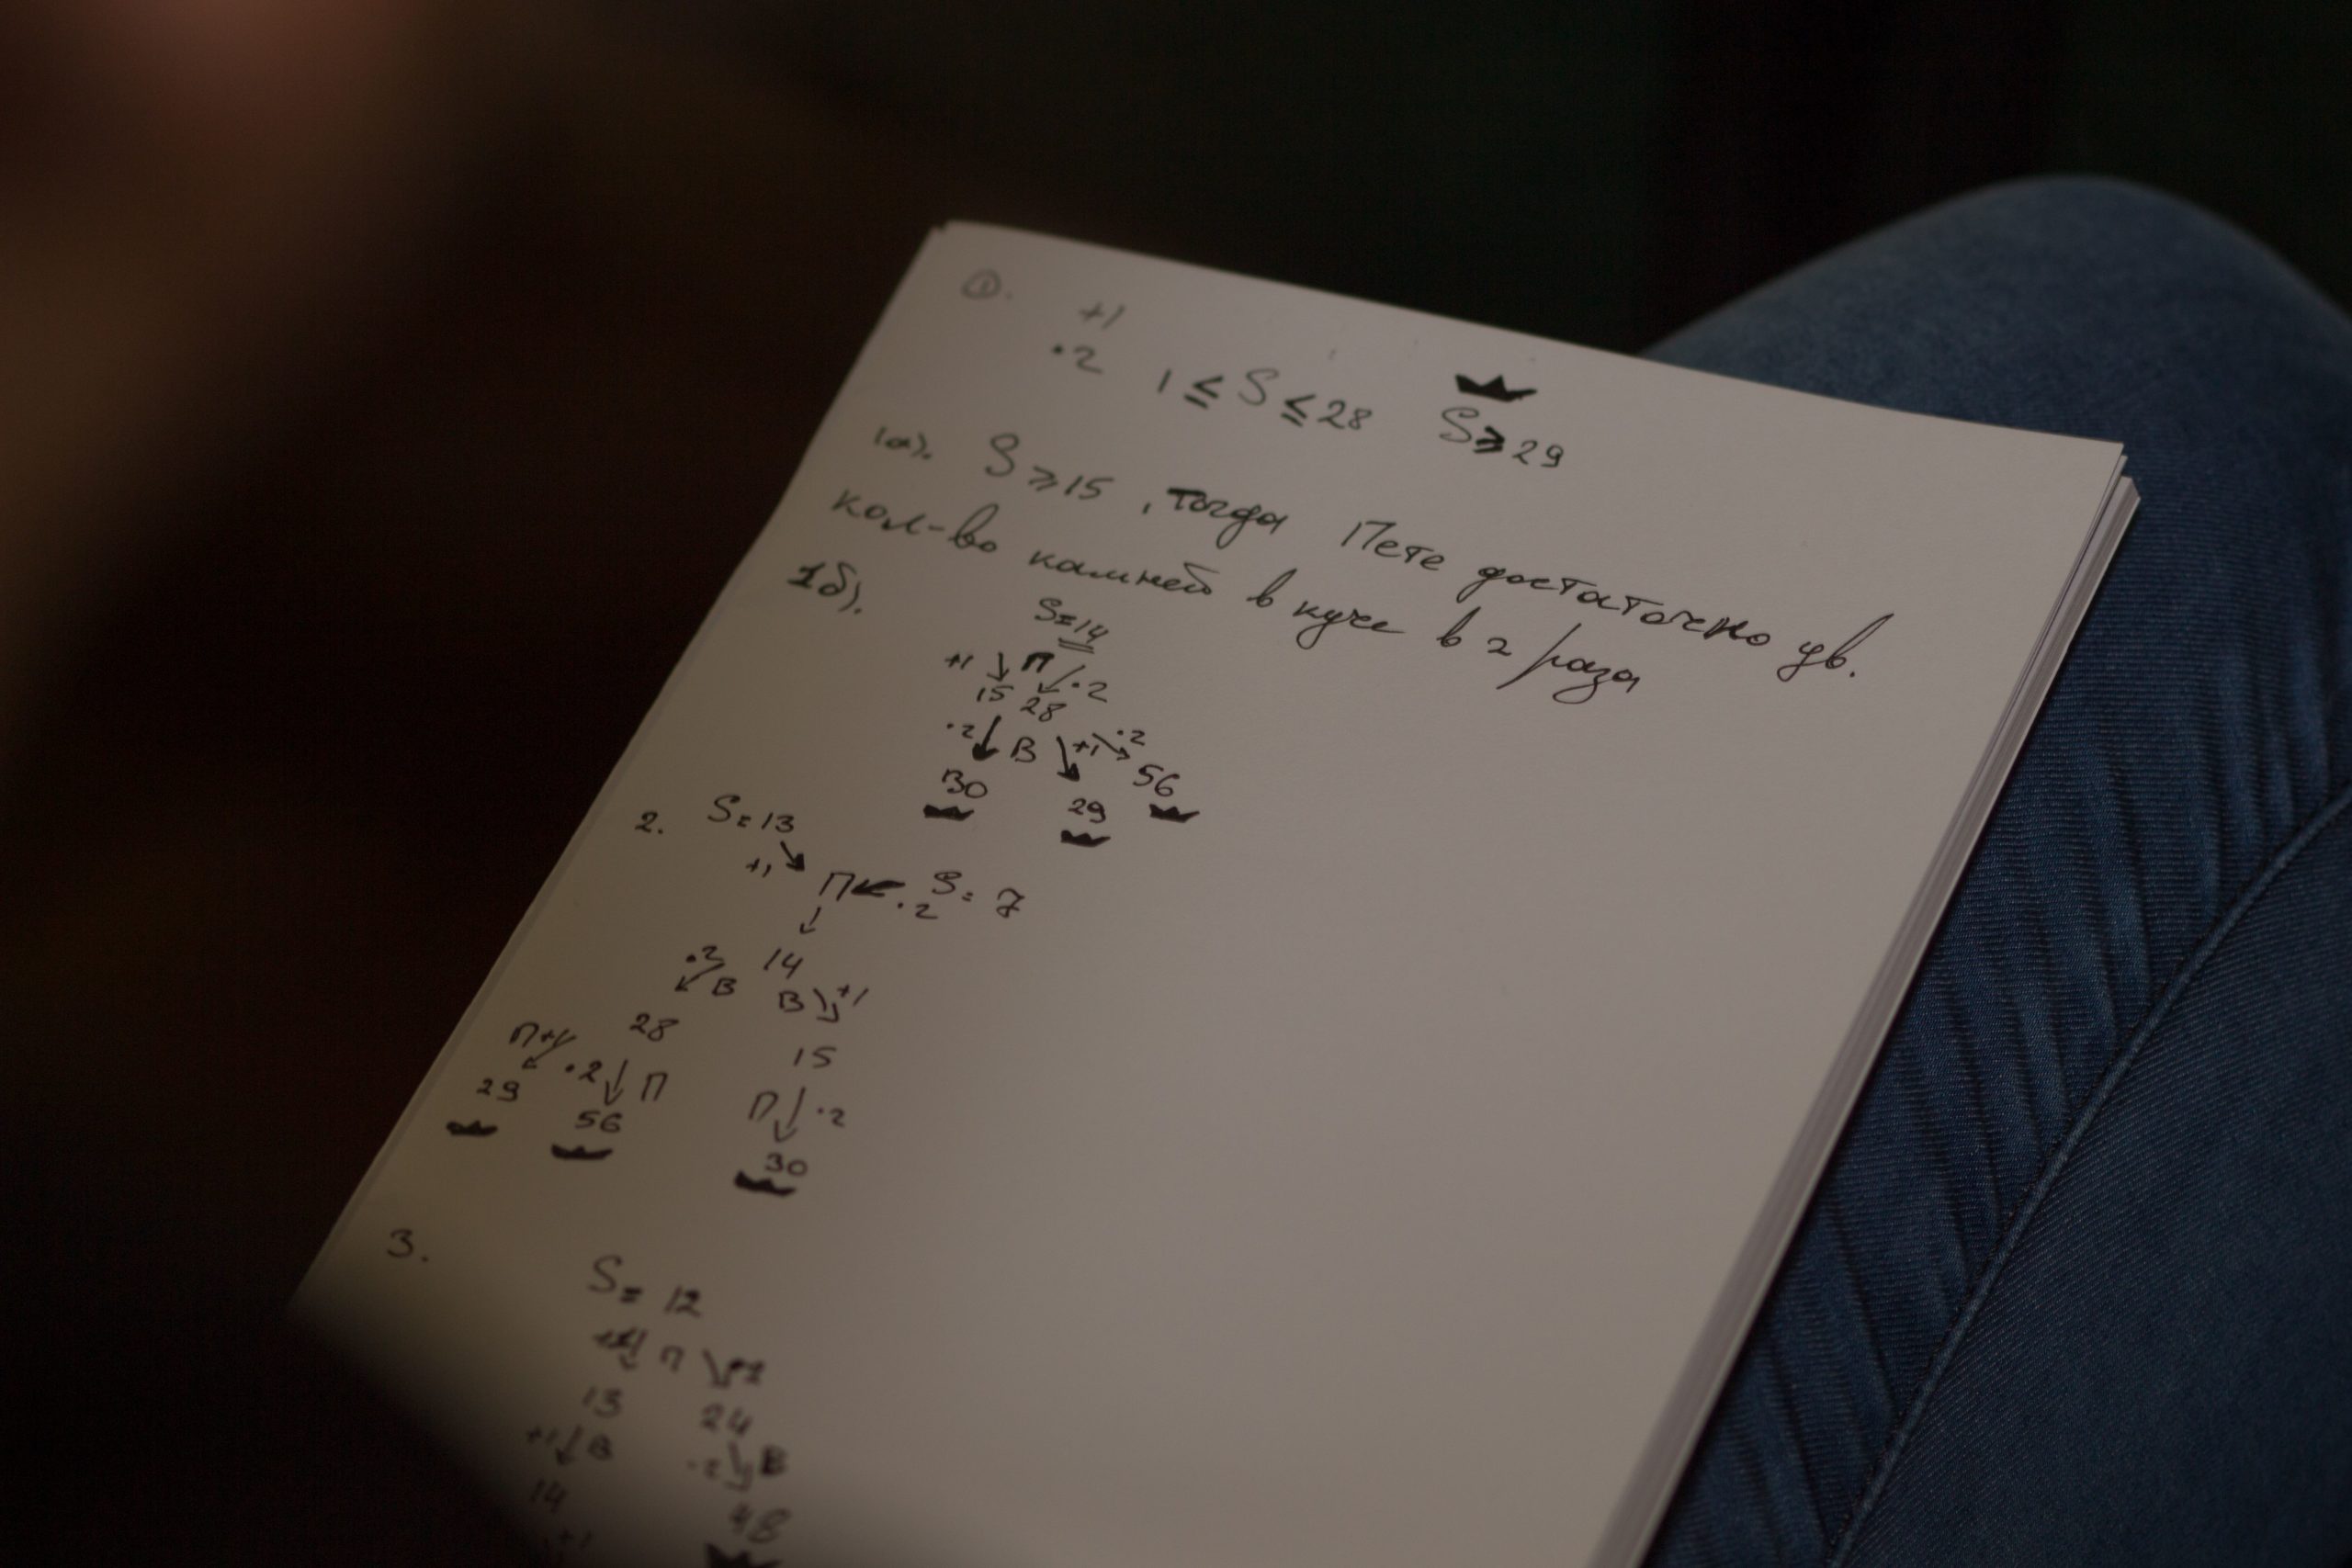 ①.
+1
·2 1 ≤ S ≤ 28 S ≥ 29
1а). S ⩾ 15, тогда Пете достаточно ув.
кол-во камней в куче в 2 раза
1б). S=14
+1 П ·2
15 28
·2 В +1 ·2
30 29 56
2. S=13
+1 П ·2 S=7
14
·2 В В +1
28 15
П+1 ·2 П П ·2
29 56 30
3.
S=12
П
13 24
+1 В ·2 В
14 48
+1